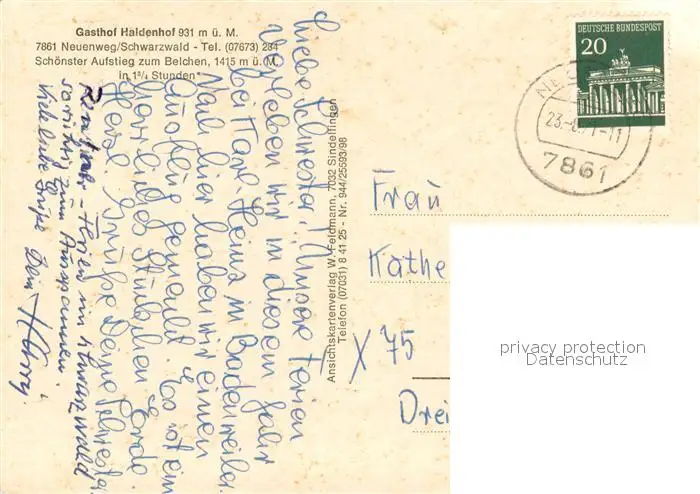 Gasthof Haldenhof 931 m ü. M.
7861 Neuenweg/Schwarzwald - Tel. (07673) 284
Schönster Aufstieg zum Belchen, 1415 m ü. M.
in 1³/₄ Stunden
Liebe Schwester! Unsere Ferien
verleben wir in diesem Jahr
bei Karl-Heinz in Badenweiler.
Nach hier haben wir einen
Ausflug gemacht. Es ist ein
herrliches Stückchen Erde.
Herzl. Grüße Deine Schwester
Rentner-Ferien im Schwarzwald
so richtig zum Ausspannen.
Viele liebe Grüße Dein Harry
Ansichtskartenverlag W. Feldmann, 7032 Sindelfingen
Telefon (07031) 8 41 25 - Nr. 944/25593/98
DEUTSCHE BUNDESPOST
20
7861
Frau
Käthe
X 75
Drei
privacy protection
Datenschutz